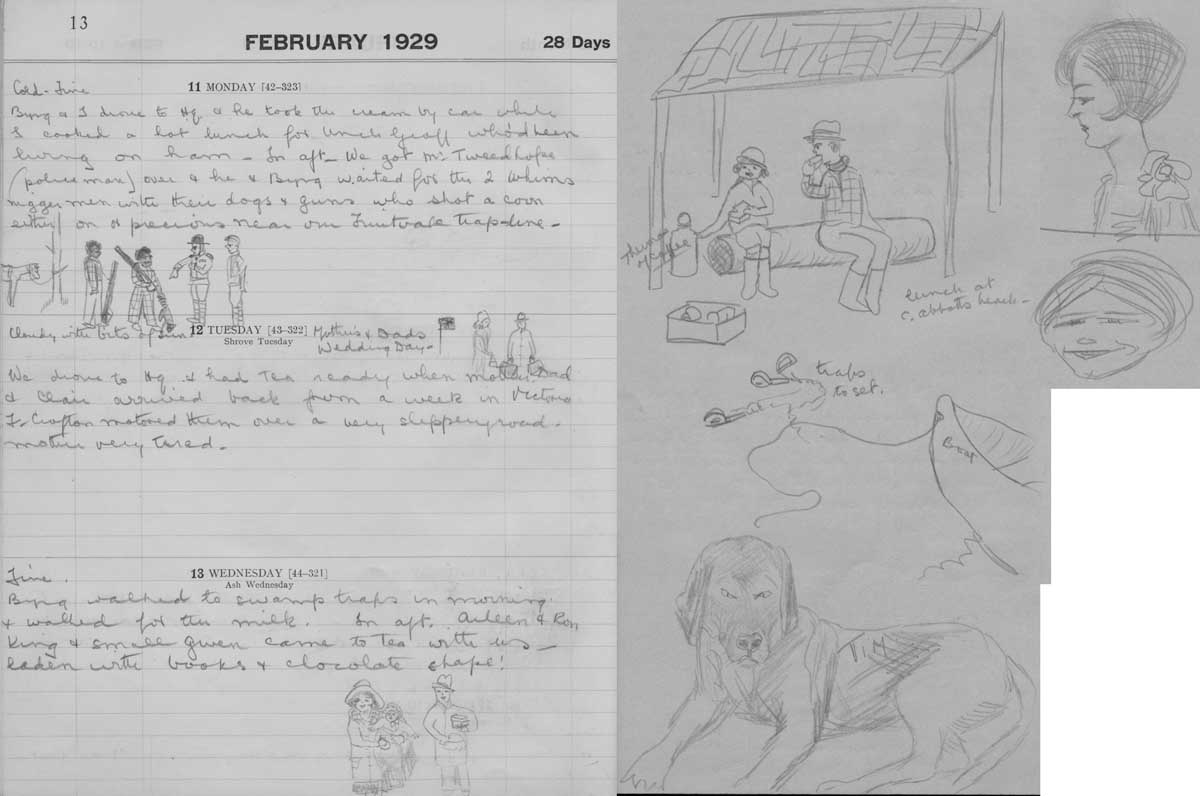 13
FEBRUARY 1929
28 Days
Cold - Fine
11 MONDAY [42-323]
Byng & I drove to Hq & he took the cream by car while
I cooked a hot lunch for Uncle Geoff who'd been
living on ham - In aft - We got Mr Tweedhope
(policeman) over & he & Byng waited for the 2 Whims
nigger men with their dogs & guns who shot a coon
on & precious near our Fruitvale Trap-line -
Cloudy with bits of sun
12 TUESDAY [43-322]
Shrove Tuesday
Mother's & Dad's
Wedding Day -
We drove to Hq & had Tea ready when mother, Dad
& Clair arrived back from a week in Victoria
F. Crofton motored them over a very slippery road.
mother very tired -
Fine.
13 WEDNESDAY [44-321]
Ash Wednesday
Byng walked to swamp traps in morning
& walked for the milk. In aft. Aileen & Ron
King & small Gwen came to Tea with us -
laden with books & chocolate shape!
lunch at
C. Abbotts beach -
traps
to set.
Boat
TIM